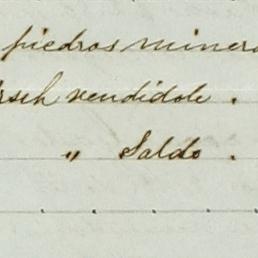 piedras minera
rsch vendidole.
" Saldo.